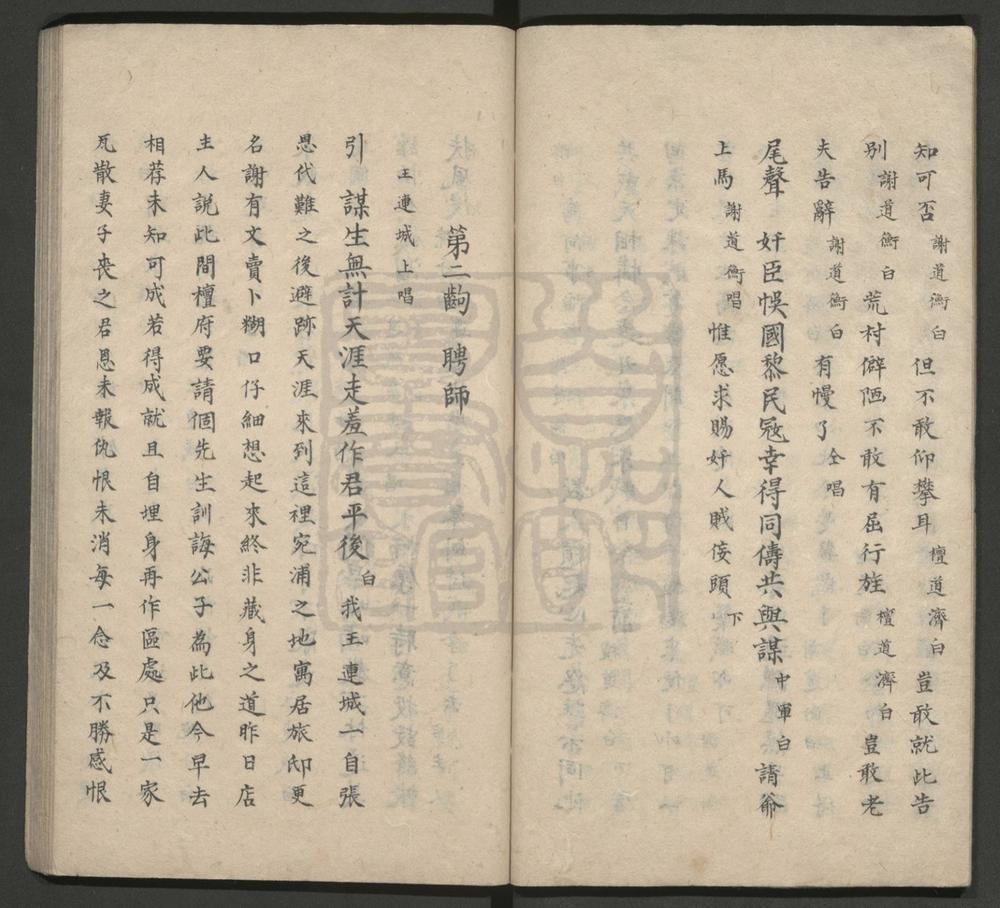 知可否謝道衡白但不敢仰攀耳檀道濟白豈敢就此告
別謝道衡白荒村僻陋不敢有屈行旌檀道濟白豈敢老
夫告辭謝道衡白有慢了仝唱
尾聲 奸臣悞國黎民冦幸得同儔共與謀中軍白請爺
上馬謝道衡唱惟愿求賜奸人賊佞頭下
第二齣 聘師
王連城上唱
引 謀生無計天涯走羞作君平後白我王連城一自張
恩代難之後避跡天涯來到這裡宛浦之地寓居旅邸更
名謝有文賣卜糊口仔細想起來終非藏身之道昨日店
主人說此間檀府要請個先生訓誨公子為此他今早去
相荐未知可成若得成就且自埋身再作區處只是一家
瓦散妻子喪之君恩未報仇恨未消每一念及不勝感恨